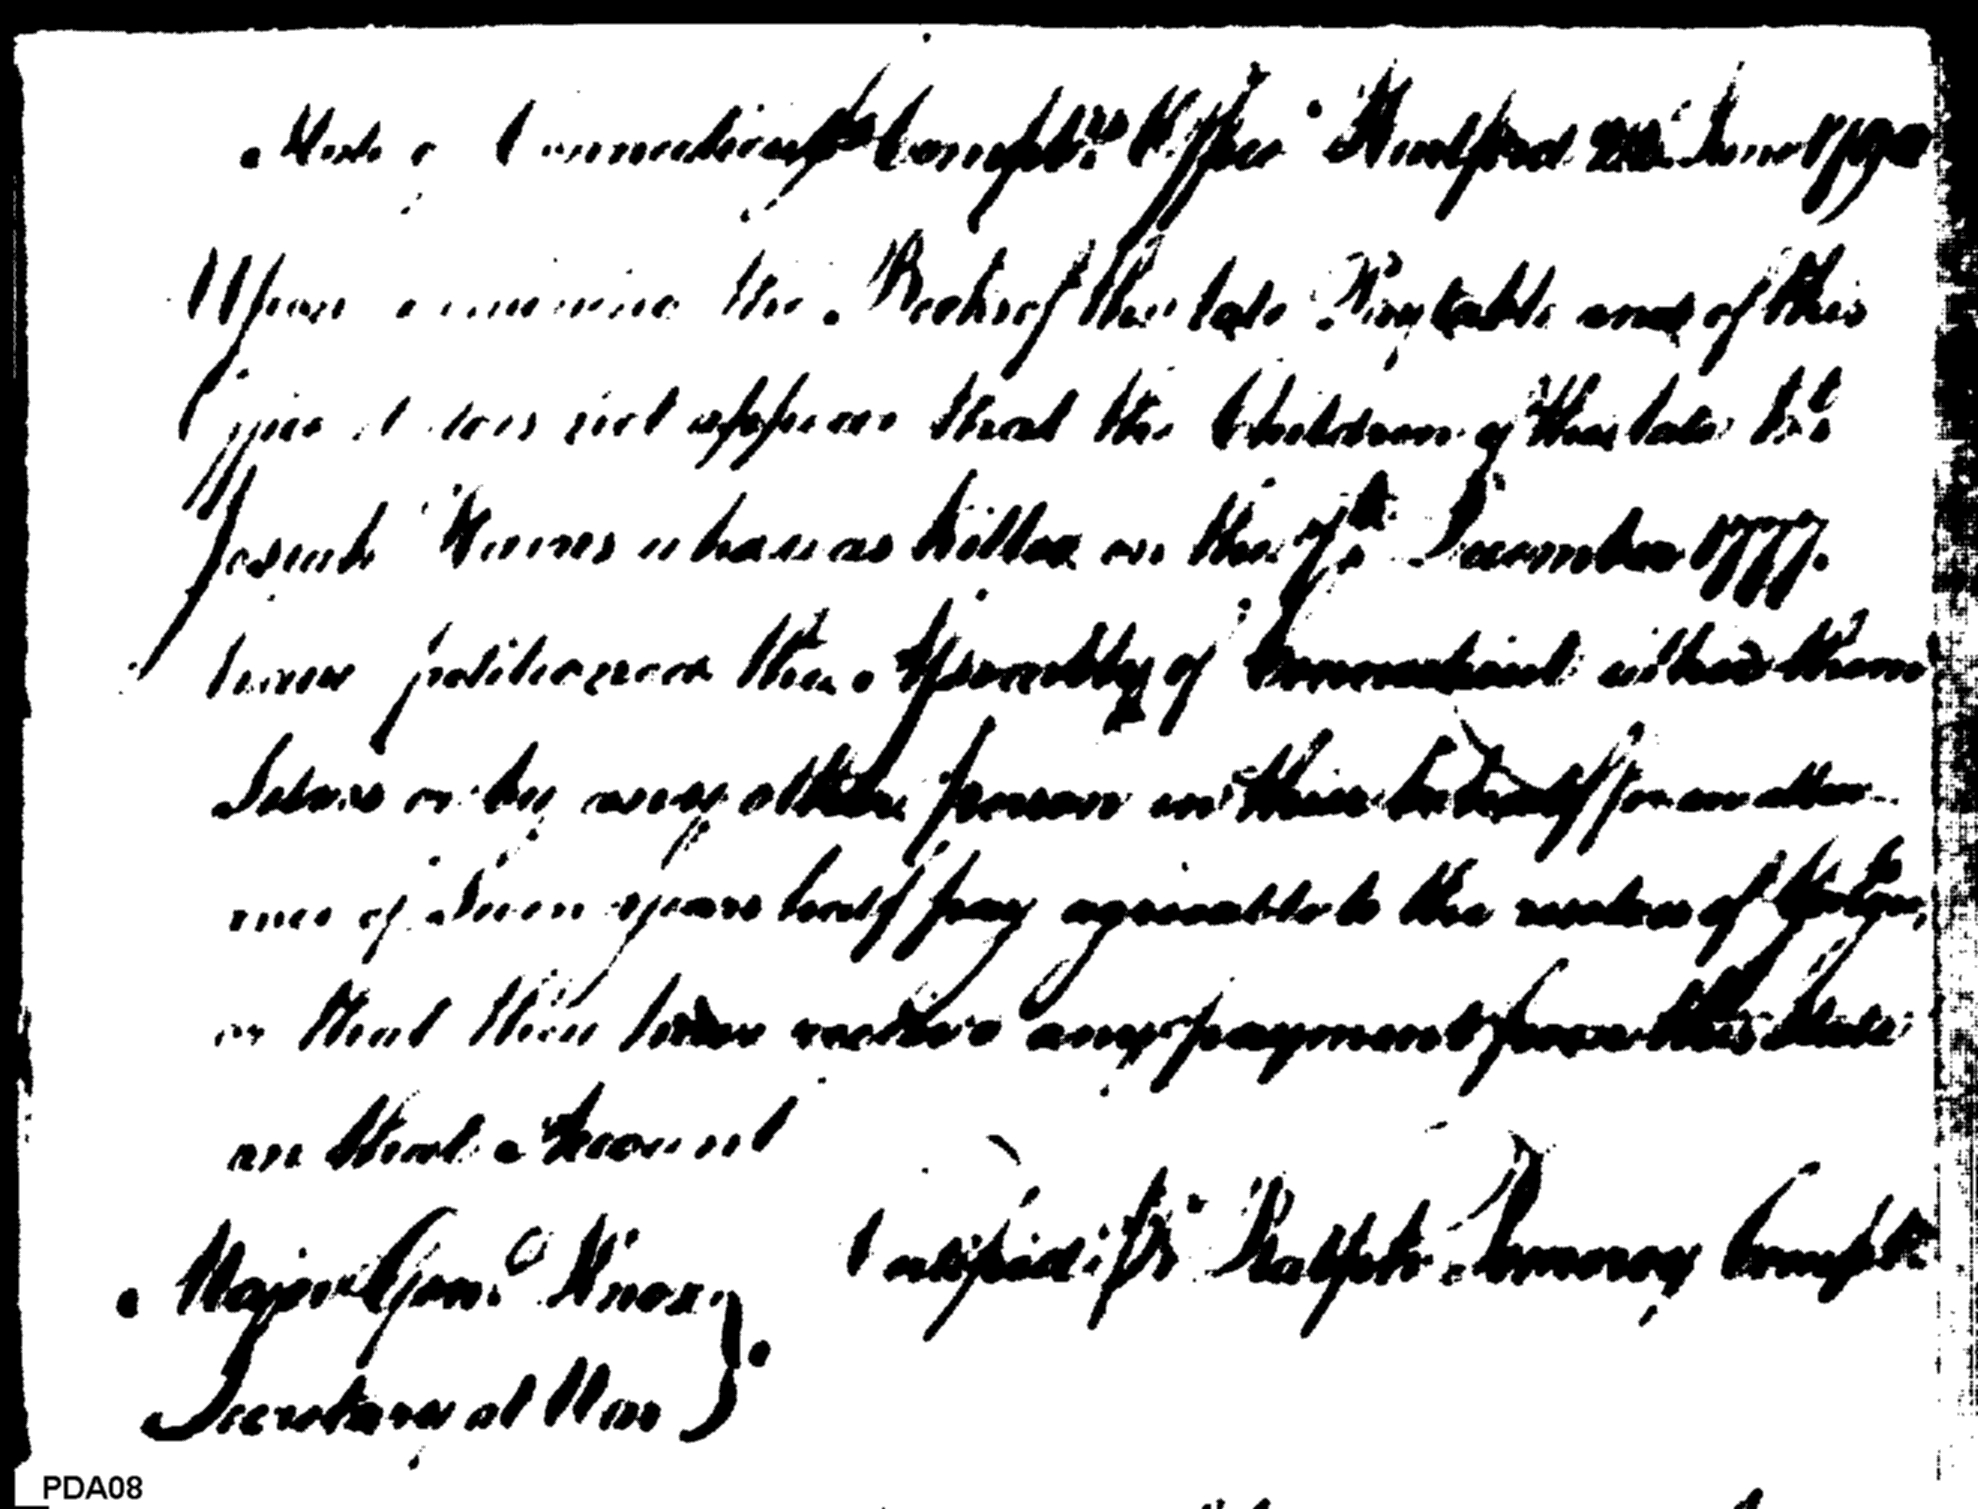 State of Connecticut Comptrs Office Hartford June 1790
Upon examining the Books of the late Pay table and of this
Office it does not appear that the Children of the late Lt
Josiah who was killed on the 7th December 1777.
have petitioned the Assembly of Connecticut either them
selves or by any other person in their behalf for an allow-
ance of Seven years half pay agreeable to the of
or that they have received any payment from this State
on that Account
Certified pr Ralph Pomeroy Comptr
Major Genl Knox
Secretary at War
PDA08